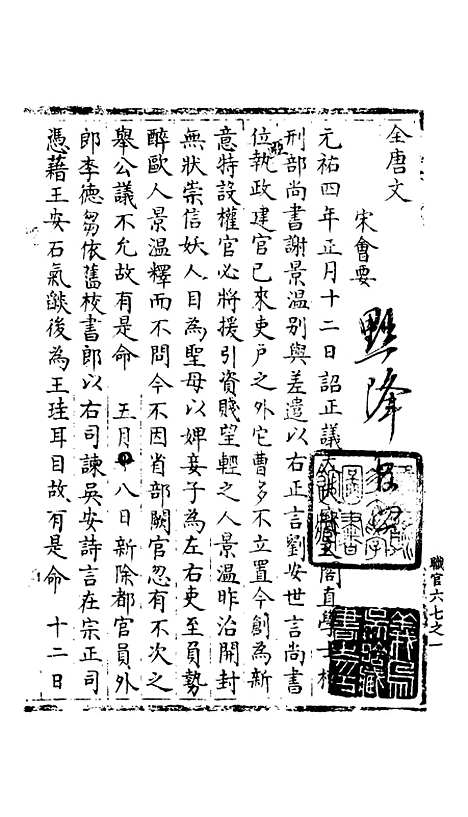 全唐文
宋會要
黜降
元祐四年正月十二日詔正議大夫 閣直學士權
刑部尚書謝景温别與差遣以右正言劉安世言尚書
位亞執政建官已來吏户之外它曹多不立置今創為新
意特設權官必將援引資賤望輕之人景温昨治開封
無狀崇信妖人目為聖母以婢妾子為左右吏員勢
醉歐人景温釋而不問今不因省部闕官忽有不次之
舉公議不允故有是命 五月十八日新除都官員外
郎李德芻依舊校書郎以右司諫吳安詩言在宗正司
憑藉王安石氣燄後為王珪耳目故有是命 十二日
職官六七之一